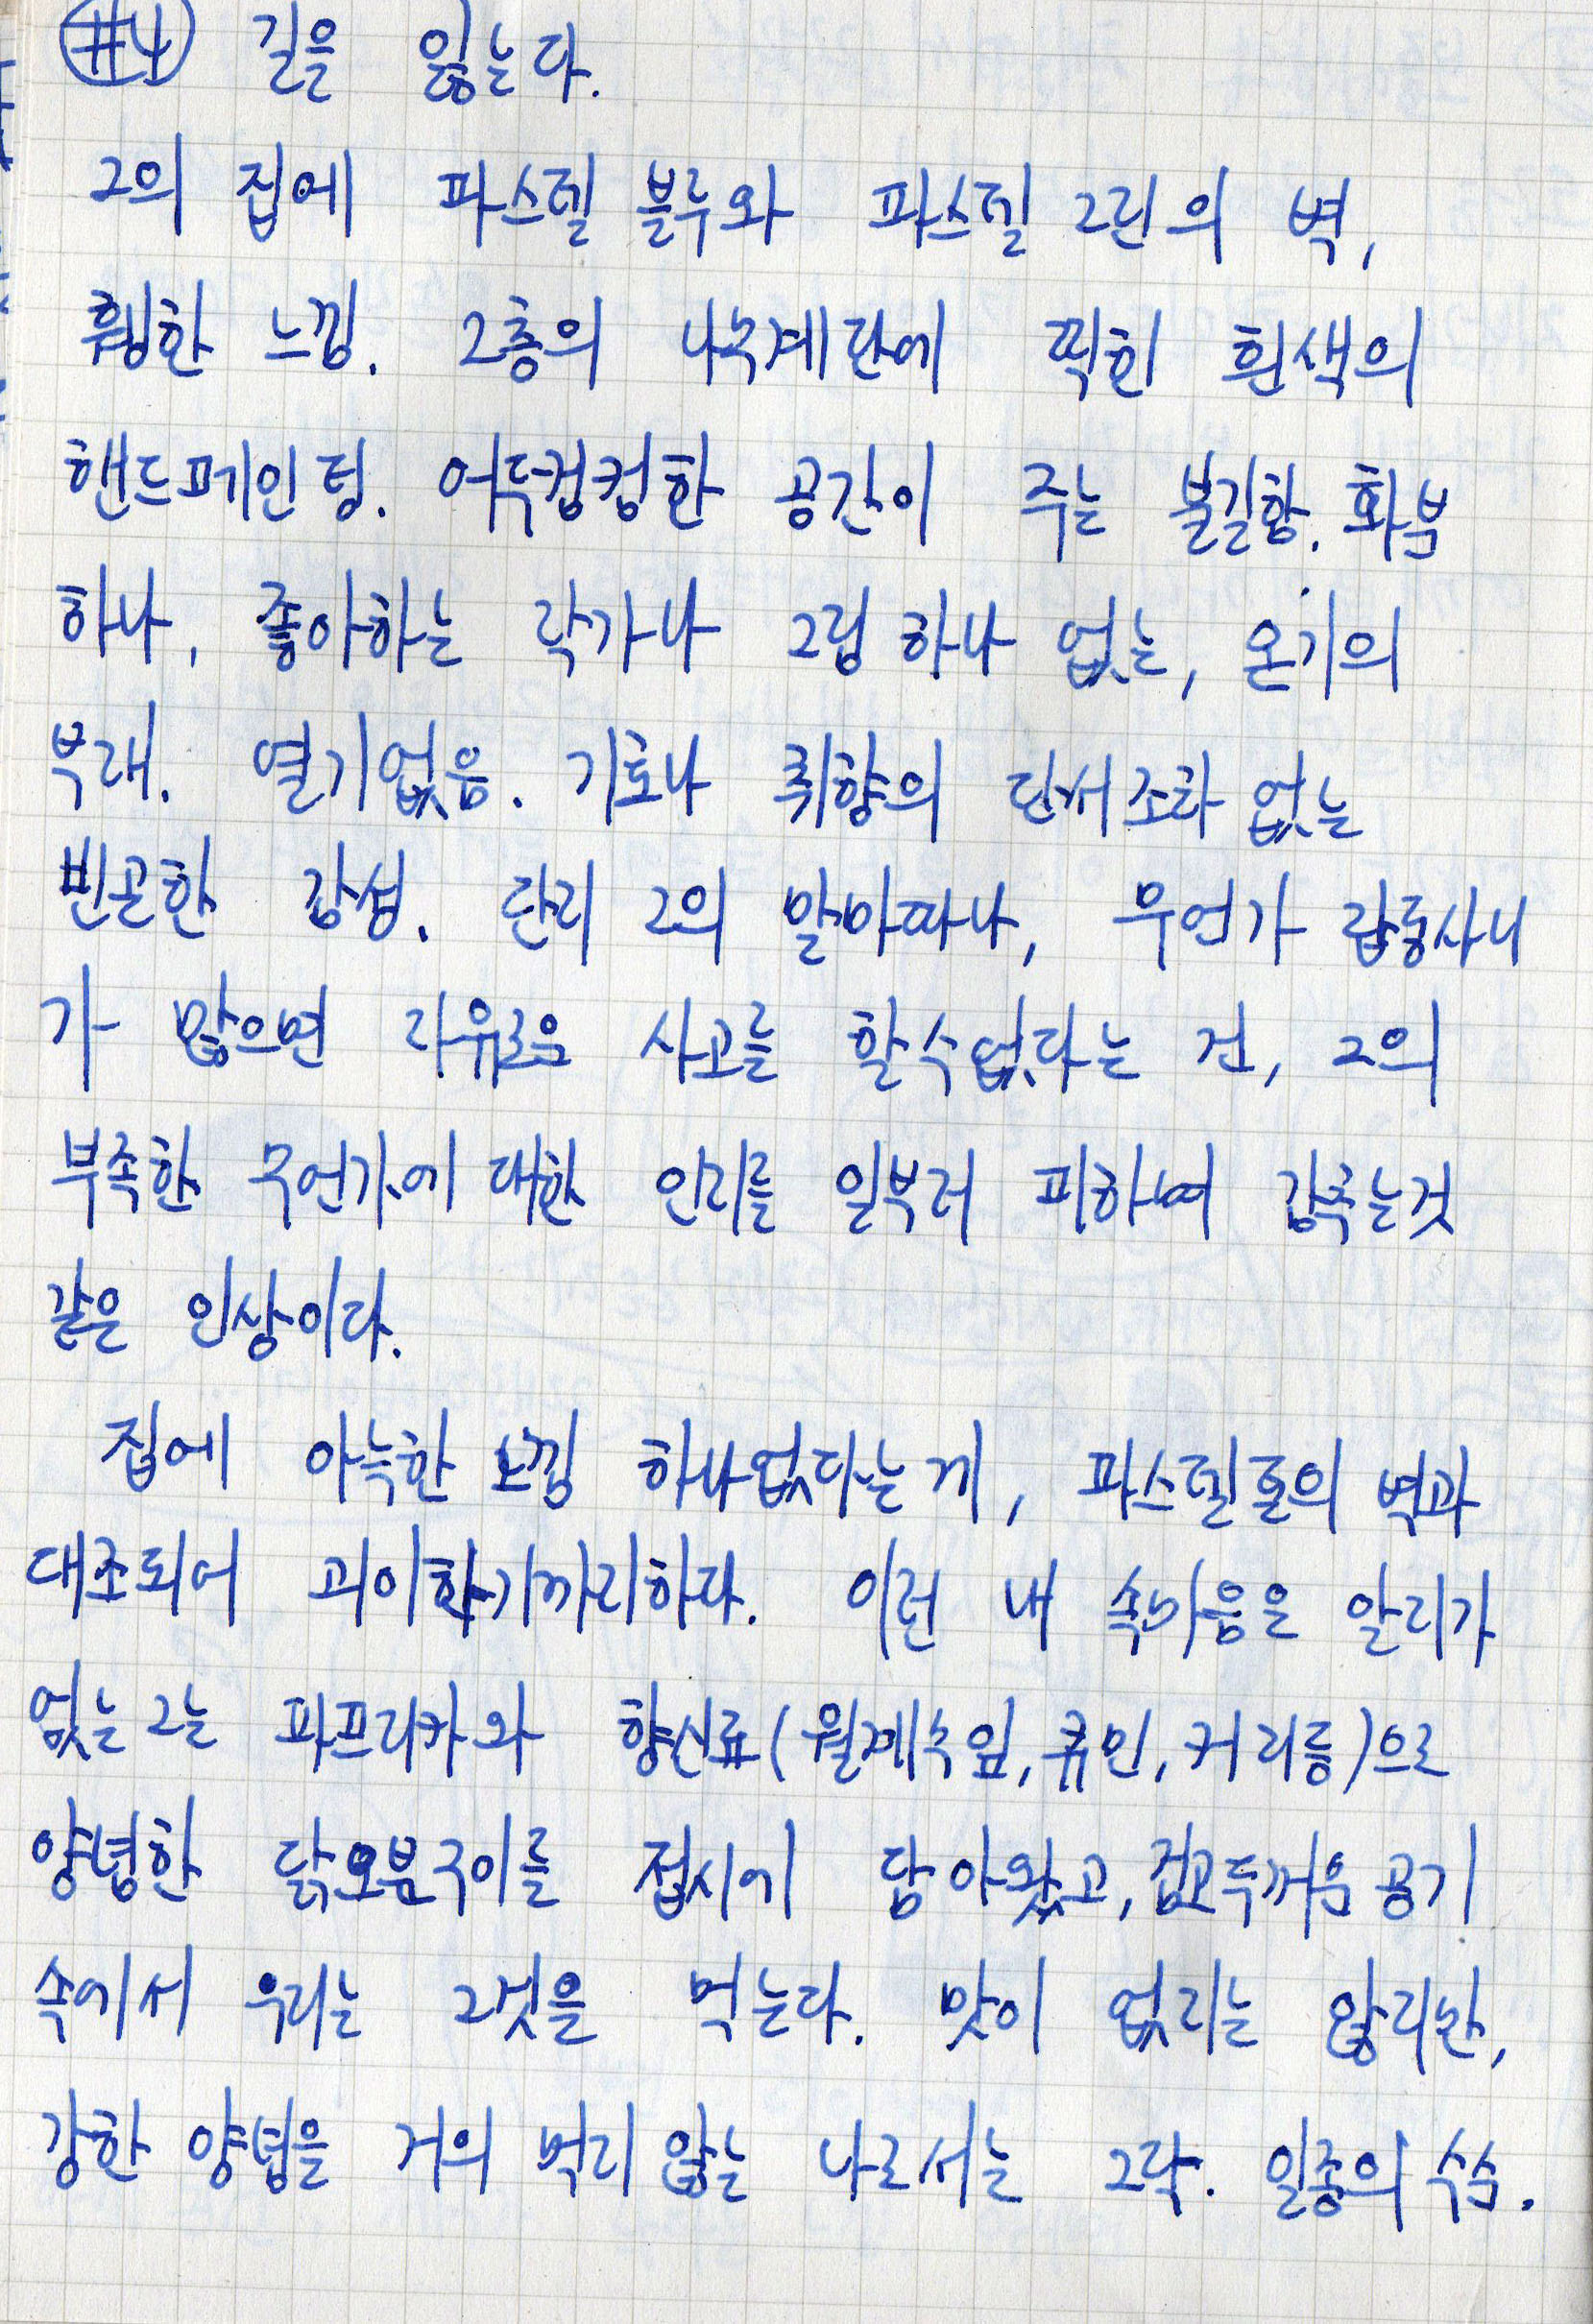 #4 길을 잃는다.
그의 집에 파스텔 블루와 파스텔 그린의 벽,
휑한 느낌. 2층의 나무계단에 찍힌 흰색의
핸드페인팅. 어두컴컴한 공간이 주는 불길함. 화분
하나, 좋아하는 작가나 그림 하나 없는, 온기의
부재. 열기없음. 기호나 취향의 단서조차 없는
빈곤한 감성. 단지 그의 말마따나, 무언가 잡동사니
가 많으면 자유로운 사고를 할 수 없다는 건, 그의
부족한 무언가에 대한 인지를 일부러 피하며 감추는것
같은 인상이다.
집에 아늑한 느낌 하나없다는게, 파스텔톤의 벽과
대조되어 괴이하기까지하다. 이런 내 속마음을 알리가
없는 그는 파프리카와 향신료(월계수잎, 큐민, 커리등)으로
양념한 닭오븐구이를 접시에 담아왔고, 검고두꺼운 공기
속에서 우리는 그것을 먹는다. 맛이 없지는 않지만,
강한 양념을 거의 먹지 않는 나로서는 그닥. 일종의 수순.